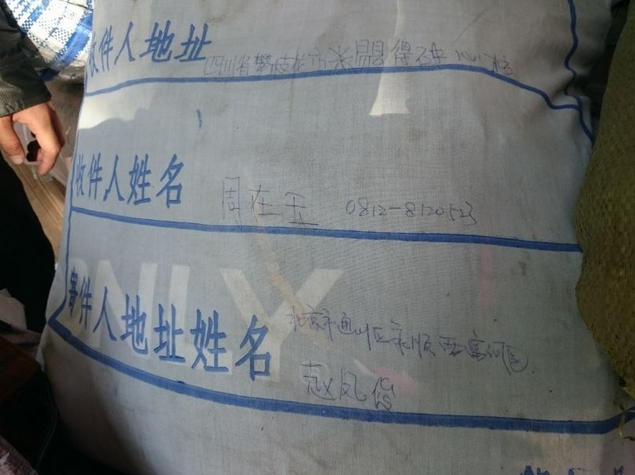 收件人地址
四川省攀枝花市米易县得石
收件人姓名
周在玉 0812-8120523
ONLY
寄件人地址姓名
北京市通州区永顺西富河园
赵凤俊